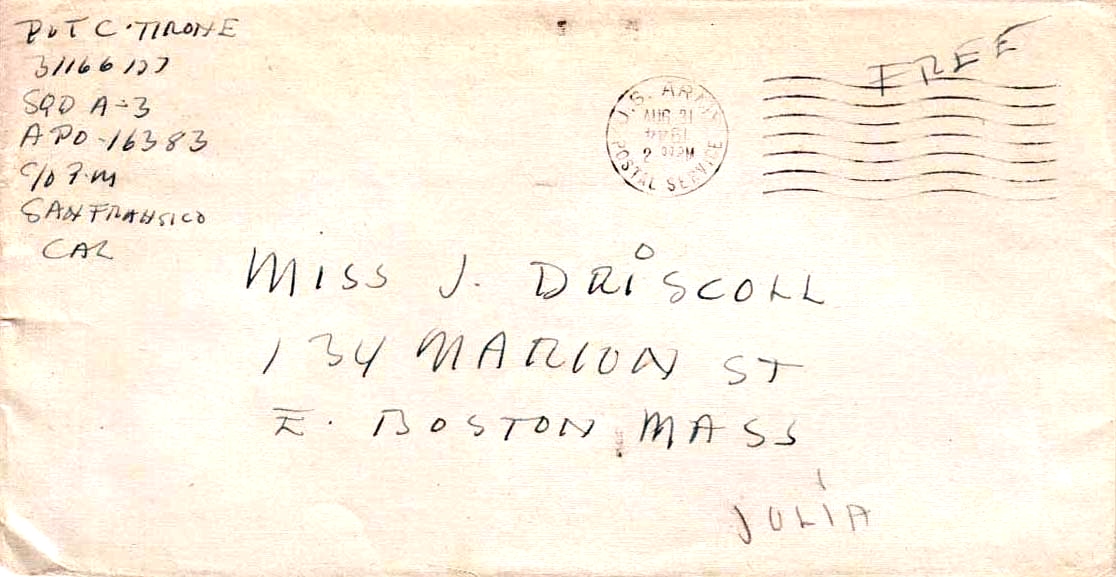 PVT C. TIRONE
31166127
SQD A-3
APO-16383
C/O P.M
SAN FRANSICO
CAL
U.S. ARMY
AUG 31
2 PM
POSTAL SERVICE
FREE
MISS J. DRISCOLL
134 MARION ST
E. BOSTON MASS
JULIA